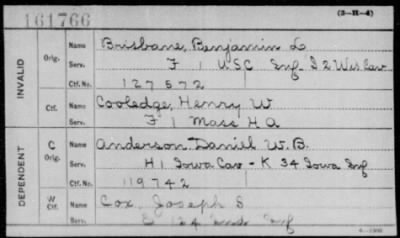 161766
(3-H-4)
INVALID
Orig.
Name Brisbane, Benjamin L
Serv. F 1 USC Inf I 2 Wis Cav
Ctf. No. 127572
Ctf.
Name Cooledge, Henry W
Serv. F 1 Mass H A
DEPENDENT
C Orig.
Name Anderson, Daniel W. B.
Serv. H 1 Iowa Cav - K 34 Iowa Inf
Ctf. No. 119742
W Ctf.
Name Cox, Joseph S
Serv. E 124 Ind Inf